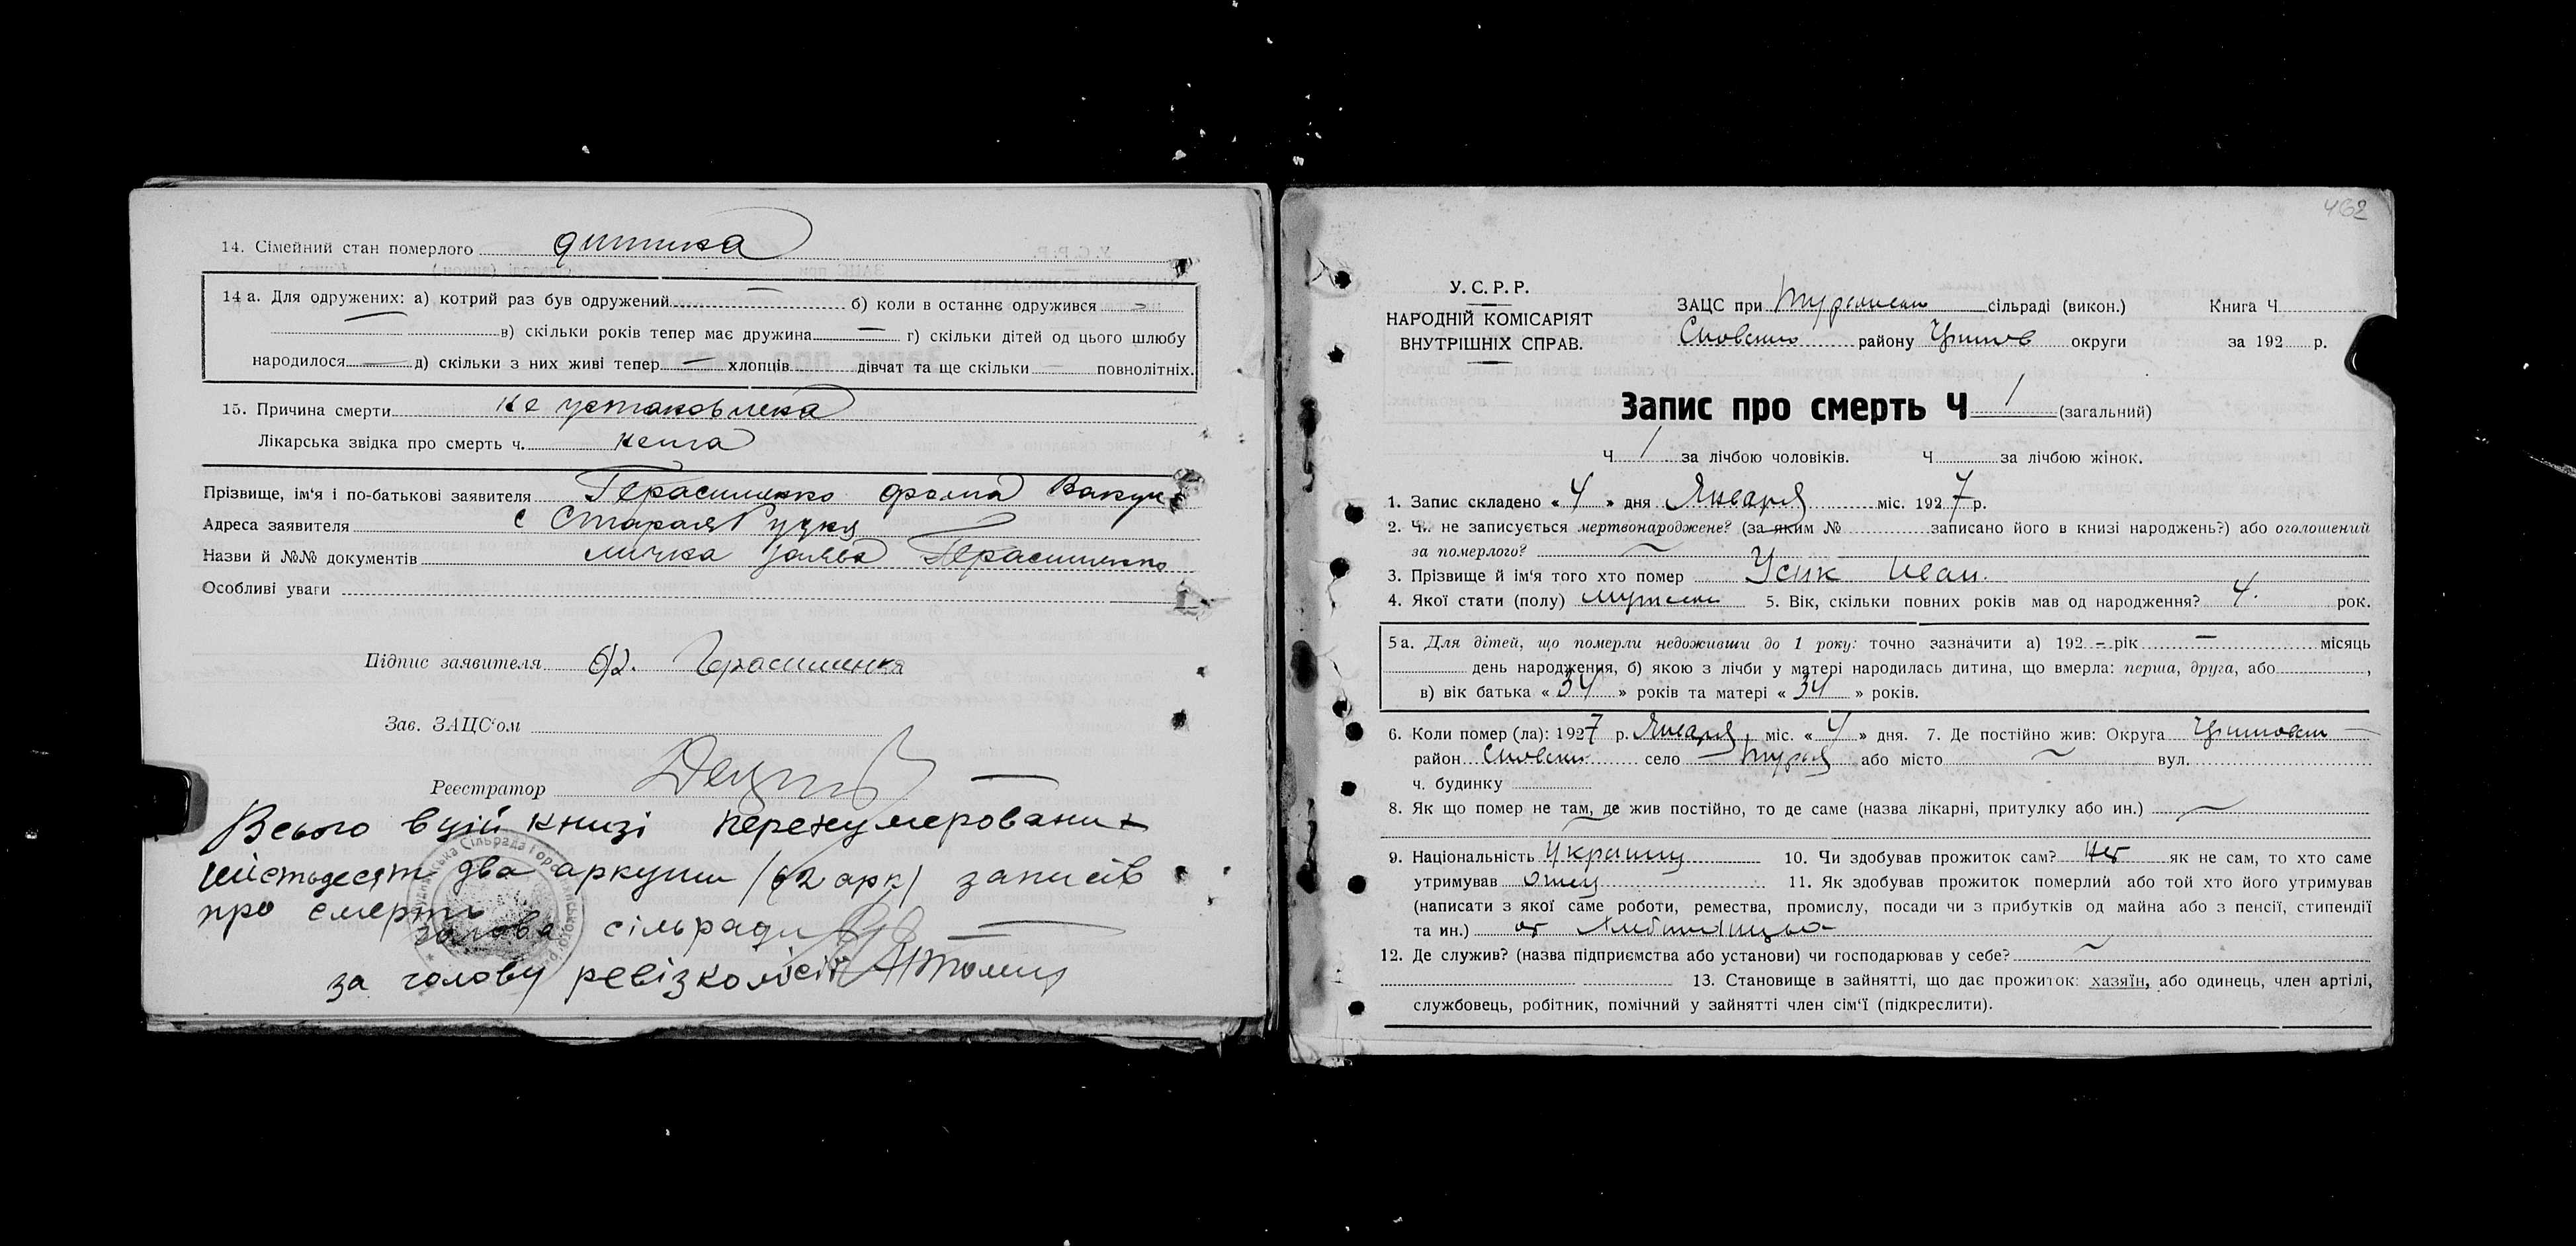 14. Сімейний стан померлого дитина
14 а. Для одружених: а) котрий раз був одружений — б) коли в останнє одружився —
— в) скільки років тепер має дружина — г) скільки дітей од цього шлюбу
народилося — д) скільки з них живі тепер — хлопців дівчат та ще скільки — повнолітніх.
15. Причина смерти не установлена
Лікарська звідка про смерть ч. нема
Прізвище, ім'я і по-батькові заявителя Герасименко Фома Вакул
Адреса заявителя с Старая Рудня
Назви й №№ документів личка заява Герасименко
Особливі уваги
Підпис заявителя Ф. Герасименка
Зав. ЗАЦС'ом
Реєстратор
Всього вций книзі перенумеровани
шістьдесят два аркуши /62 арк/ записів
про смерть
голова сільради
за голову ревізкомісії
462
У. С. Р. Р.
НАРОДНІЙ КОМІСАРІЯТ
ВНУТРІШНІХ СПРАВ.
ЗАЦС при Турянскі сільраді (викон.) Книга Ч
Сновского району округи за 192 р.
Запис про смерть Ч 1 (загальний)
Ч 1 за лічбою чоловіків. Ч за лічбою жінок.
1. Запис складено « 4 » дня Января міс. 1927 р.
2. Ч.. не записується мертвонароджене? (за яким № записано його в книзі народжень?) або оголошений
за померлого? ~
3. Прізвище й ім'я того хто помер Усик Иван.
4. Якої стати (полу) мужески 5. Вік, скільки повних років мав од народження? 4. рок.
5 а. Для дітей, що померли недоживши до 1 року: точно зазначити а) 192 – рік — місяць
день народження, б) якою з лічби у матері народилась дитина, що вмерла: перша, друга, або ,
в) вік батька « 34 » років та матері « 34 » років.
6. Коли помер (ла): 1927 р. Января міс. « 4 » дня. 7. Де постійно жив: Округа
район Сновски село Турья або місто ~ вул.
ч. будинку
8. Як що помер не там, де жив постійно, то де саме (назва лікарні, притулку або ин.) ~
9. Національність Украинц 10. Чи здобував прожиток сам? Нет як не сам, то хто саме
утримував отец 11. Як здобував прожиток померлий або той хто його утримував
(написати з якої саме роботи, ремества, промислу, посади чи з прибутків од майна або з пенсії, стипендії
та ин.) от
12. Де служив? (назва підприємства або установи) чи господарював у себе? ~
13. Становище в зайнятті, що дає прожиток: хазяїн, або одинець, член артілі,
службовець, робітник, помічний у зайнятті член сім'ї (підкреслити).